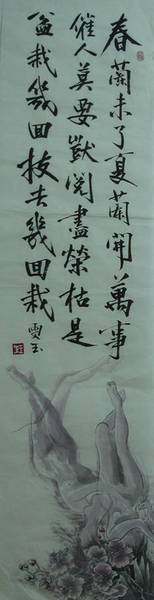 春蘭未了夏蘭開萬事
催人莫要獃閱盡榮枯是
盆栽幾回拔去幾回栽